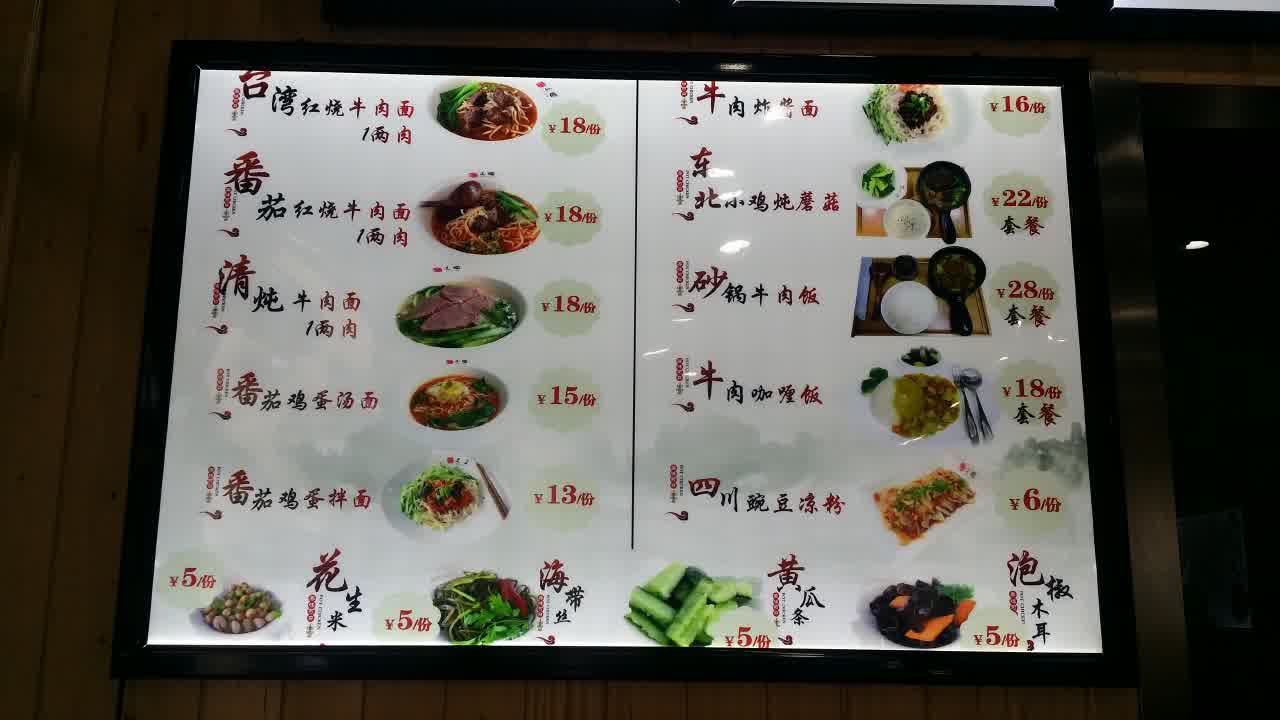 台湾红烧牛肉面
1两肉
¥18/份
番茄红烧牛肉面
1两肉
¥18/份
清炖牛肉面
1两肉
¥18/份
番茄鸡蛋汤面
¥15/份
番茄鸡蛋拌面
¥13/份
牛肉炸酱面
¥16/份
东北小鸡炖蘑菇
¥22/份
套餐
砂锅牛肉饭
¥28/份
套餐
牛肉咖喱饭
¥18/份
套餐
四川豌豆凉粉
¥6/份
¥5/份
花生米
¥5/份
海带丝
¥5/份
黄瓜条
¥5/份
泡椒木耳